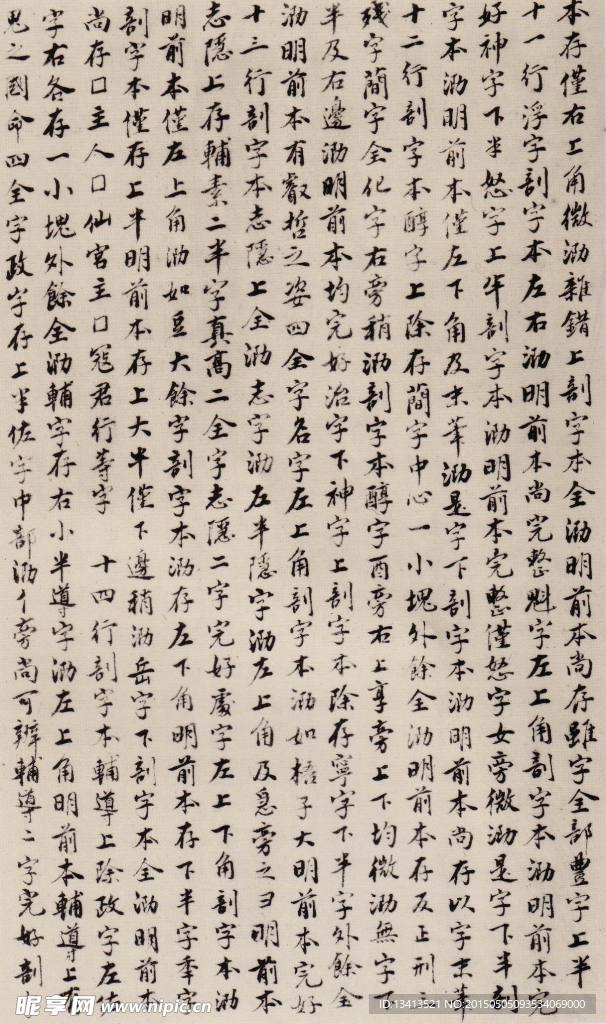 本存僅右上角微泐雜錯上剖字本全泐明前本尚存雖字全部豐字上半
十一行浮字剖字本左右泐明前本尚完整魁字左上角剖字本泐明前本完
好神字下半怒字上半剖字本泐明前本完整僅怒字女旁微泐是字下半剖
字本泐明前本僅左下角及末筆泐是字下剖字本泐明前本尚存以字末筆
十二行剖字本醇字上除存蕳字中心一小塊外餘全泐明前本存反正刑
殘字蕳字全化字右旁稍泐剖字本醇字酉旁右上享旁上下均微泐無字
半及右邊泐明前本均完好治字下神字上剖字本除存寧字下半字外餘全
泐明前本有叡哲之姿四全字名字左上角剖字本泐如梧子大明前本完好
十三行剖字本志隱上全泐志字泐左半隱字泐左上角及急旁之彐明前本
志隱上存輔素二半字真高二全字志隱二字完好處字左上下角剖字本泐
明前本僅左上角泐如豆大餘字剖字本泐存左下角明前本存下半字奉字
剖字本僅存上半明前本存上大半僅下邊稍泐岳字下剖字本全泐明前本
尚存口主人口仙宮主口冠君行等字 十四行剖字本輔導上除政字左佐
字右各存一小塊外餘全泐輔字存右小半導字泐左上角明前本輔導上有
鬼之國命四全字政字存上半佐字中部泐亻旁尚可辨輔導二字完好剖
昵享网 www.nipic.cn
ID:13413521 NO:20150505093534069000